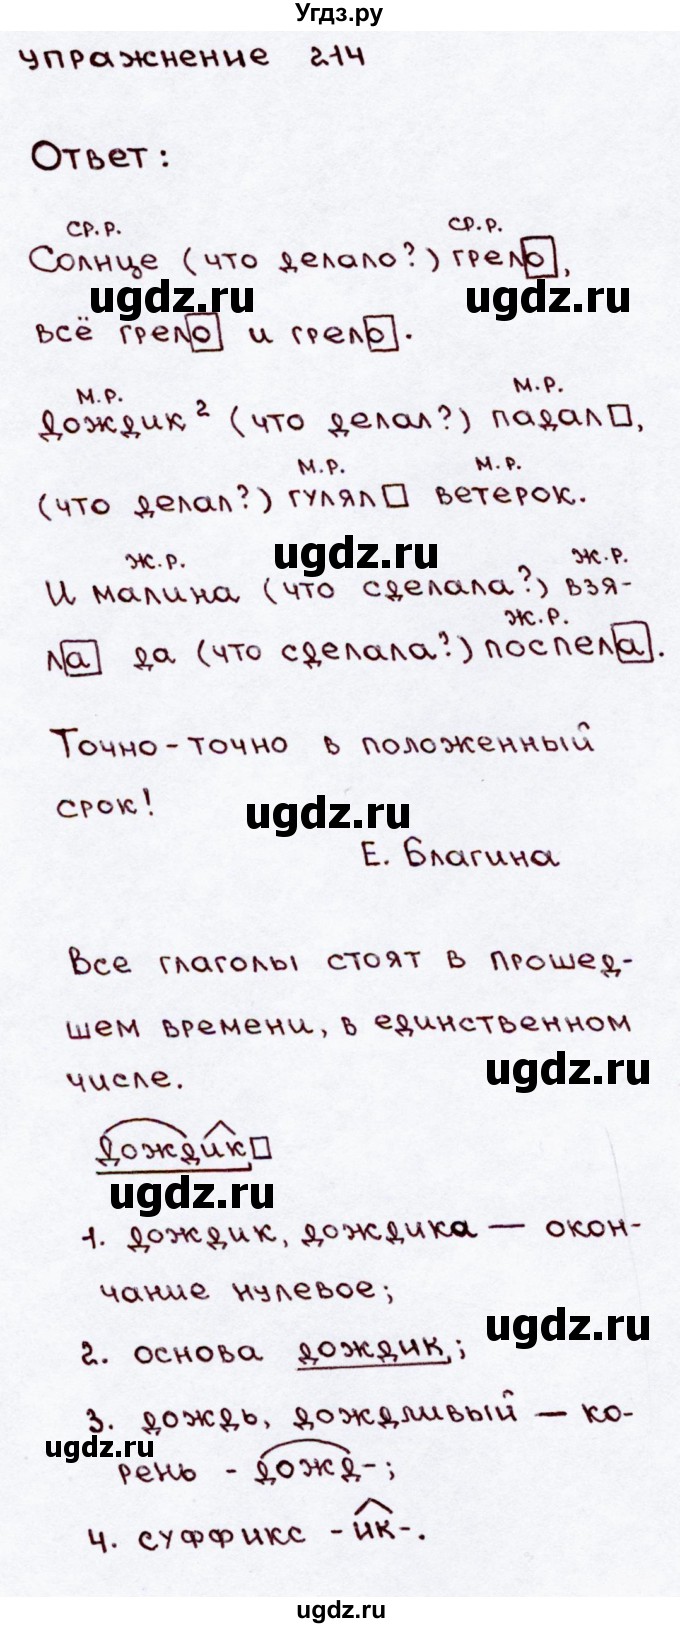 Угдз.ру
упражнение 214
Ответ:
ср.р. ср.р.
Солнце (что делало?) грело,
ugdz.ru ugdz.ru
всё грело и грело.
м.р. м.р.
Дождик² (что делал?) падал,
м.р. м.р.
(что делал?) гулял ветерок.
ugdz.ru
ж.р. ж.р.
И малина (что сделала?) взя-
ж.р.
ла да (что сделала?) поспела.
Точно-точно в положенный
срок!
ugdz.ru
Е. Благина
Все глаголы стоят в прошед-
шем времени, в единственном
ugdz.ru
числе.
дождик
ugdz.ru
1. дождик, дождика — окон-
чание нулевое;
ugdz.ru
2. основа дождик;
3. дождь, дождливый — ко-
ugdz.ru
рень - дожд-;
4. суффикс -ик-.
ugdz.ru